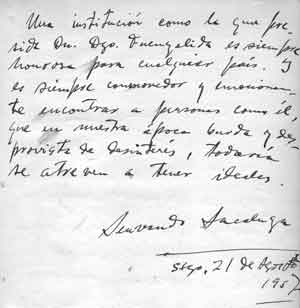 Una institución como la que pre-
side Dn. Dgo. Fuenzalida es siempre
honrosa para cualquier país. Y
es siempre conmovedor y emocionan-
te encontrar a personas como él,
que en nuestra época burda y des-
provista de desinterés, todavía
se atreven a tener ideales.
Servando
Stgo, 21 de Agosto
1957